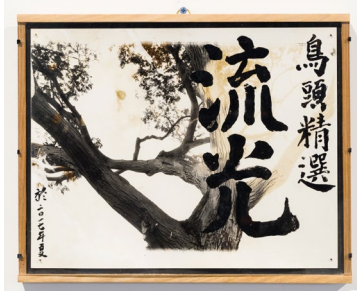 鳥頭精選
流光
於二〇一七年夏